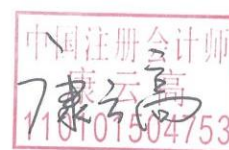 中国注册会计师
康云高
康云高
110101504753